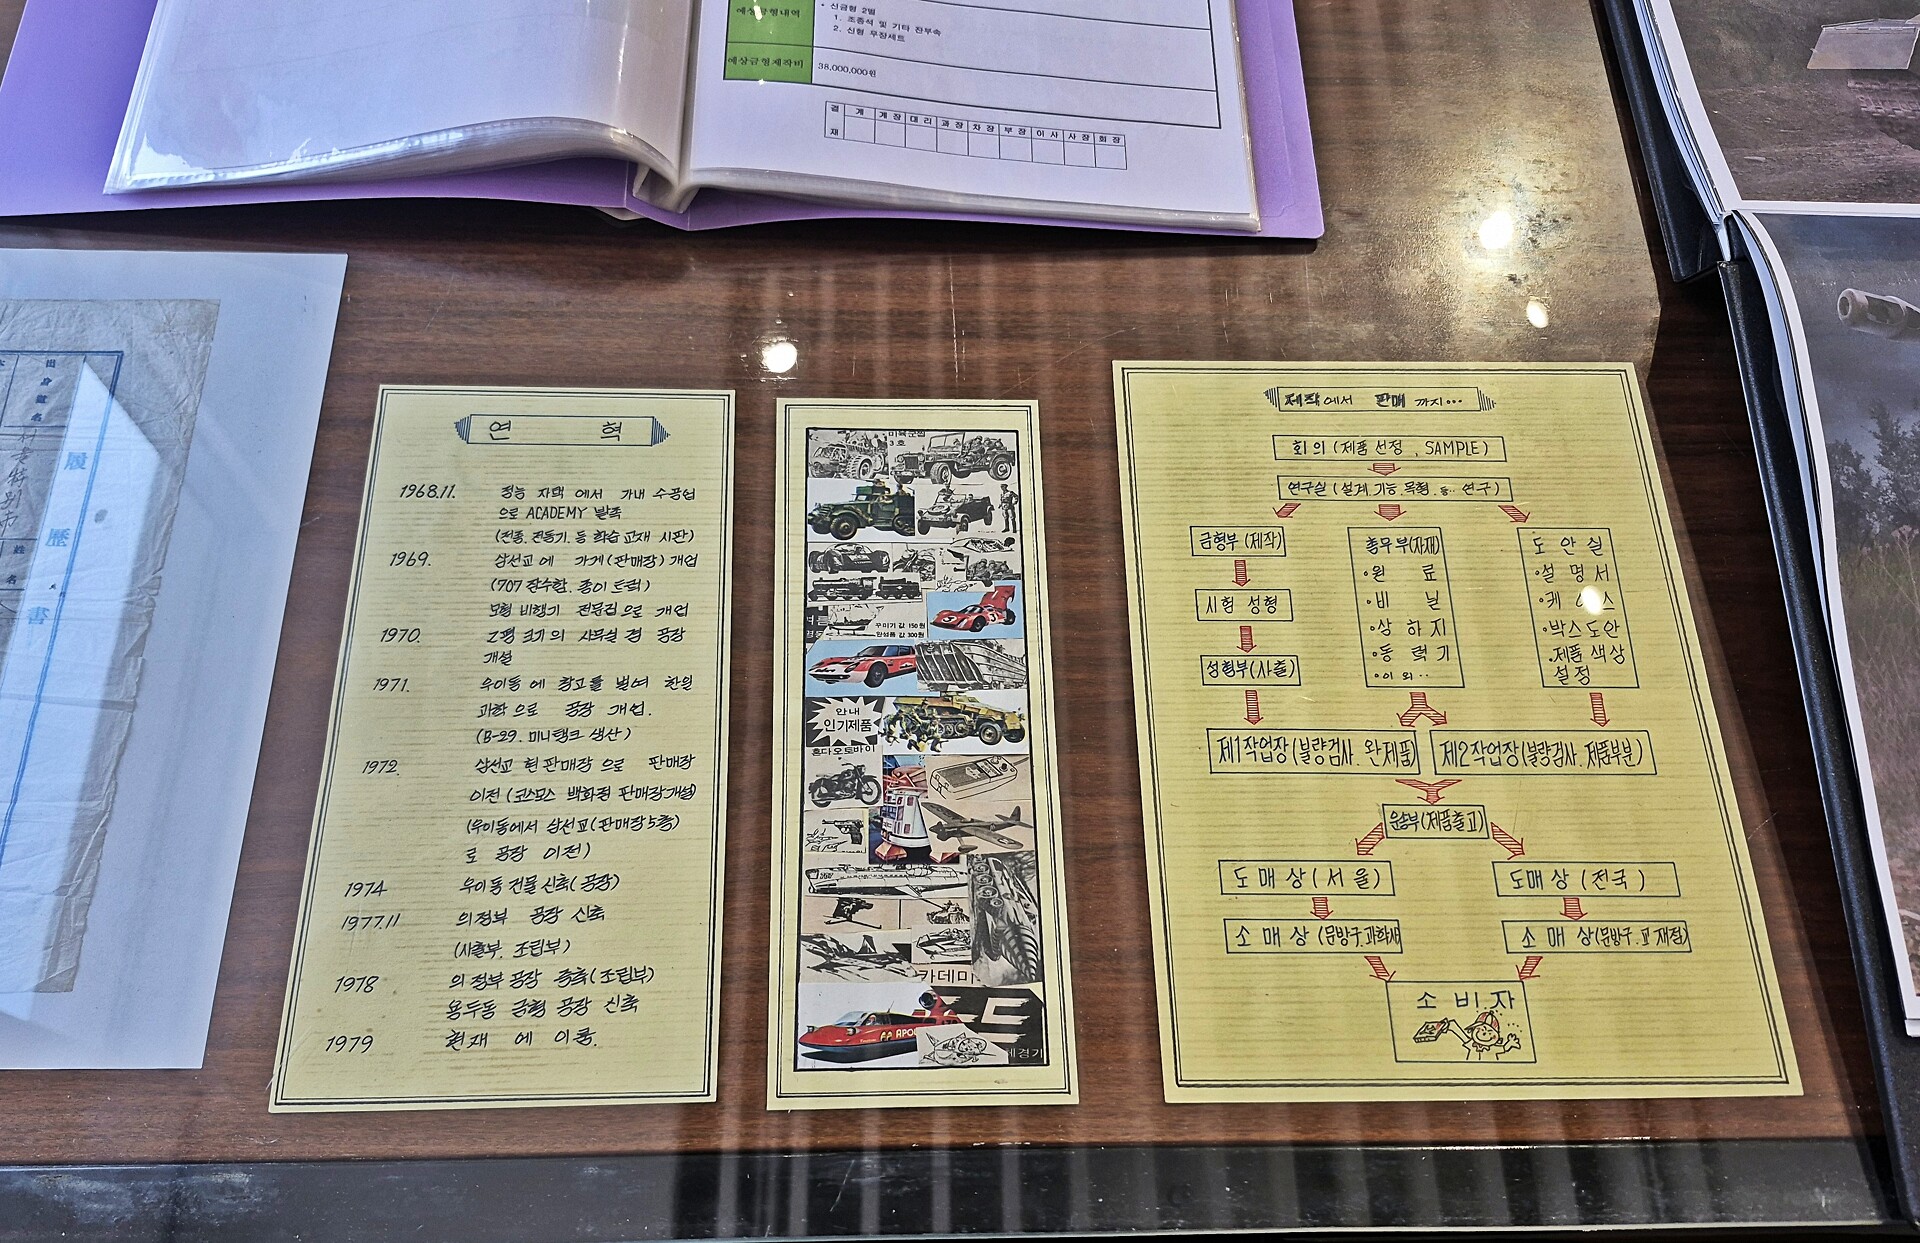 예상금형내역
• 신금형 2벌
1. 조종석 및 기타 잔부속
2. 신형 무장세트
예상금형제작비
38,000,000원
결재
계
계장
대리
과장
차장
부장
이사
사장
회장
履歷書
姓名
연 혁
1968.11. 정능 자택 에서 가내 수공업
으로 ACADEMY 발족
(전종. 전동기. 등 학습 교재 시판)
1969. 삼선교 에 가게(판매장) 개업
(707 잠수함. 종이 트럭)
모형 비행기 전문점 으로 개업
1970. 2평 크기의 사무실 겸 공장
개설
1971. 우이동 에 창고를 빌려 한일
과학 으로 공장 개업.
(B-29. 미니탱크 생산)
1972. 삼선교 현 판매장 으로 판매장
이전 (코스모스 백화점 판매장개설)
(우이동에서 삼선교(판매장 5층)
로 공장 이전)
1974 우이동 건물 신축(공장)
1977.11 의정부 공장 신축
(사출부. 조립부)
1978 의정부 공장 증축(조립부)
용두동 금형 공장 신축
1979 현재 에 이름.
3호
꾸미기 값 150원
완성품 값 300원
안내
인기제품
혼다오토바이
카데미
APO
제작에서 판매 까지...
회의 (제품 선정, SAMPLE)
연구실 (설계. 기능. 목형. 등.. 연구)
금형부 (제작)
시험 성형
성형부(사출)
총무부(자재)
•원 료
•비 닐
•상 하 지
•동 력 기
•이 외..
도 안 실
•설 명 서
•케 이 스
•박스도안
•제품 색상
설정
제1작업장(불량검사. 완제품)
제2작업장(불량검사. 제품부분)
운송부(제품출고)
도 매 상 (서 울)
도매 상 (전국)
소 매 상 (문방구.과학사)
소 매 상(문방구.교재점)
소 비 자